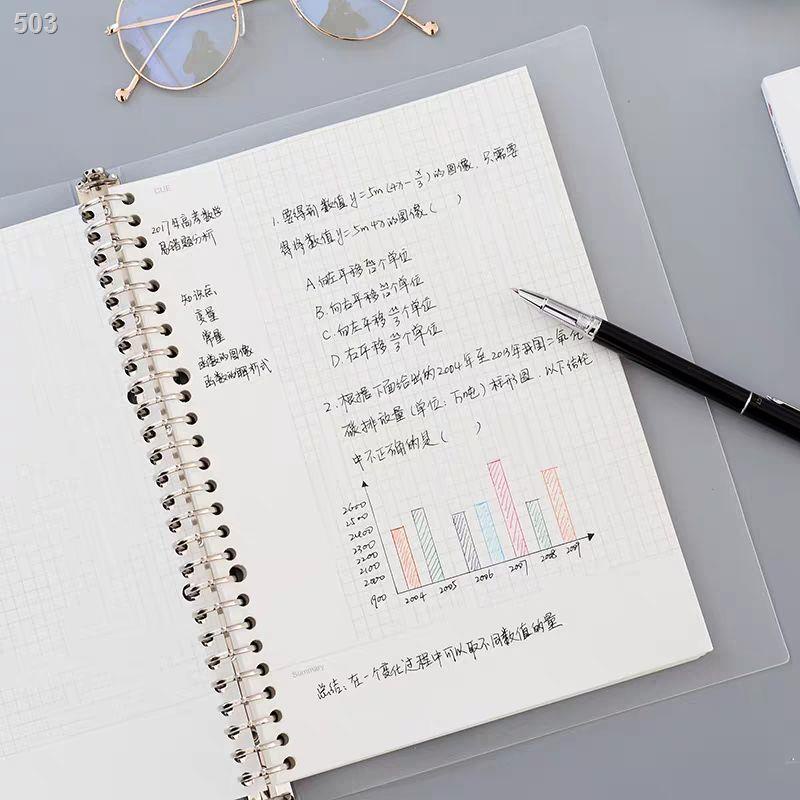 503
CUE
2017年高考数学
易错题分析
知识点:
变量
常量
函数的图像
函数的解析式
1. 要得到数值y=sin(4x-x/3)的图像,只需要
得将数值y=sin4x的图像( )
A.向左平移 个单位
B.向右平移 个单位
C.向左平移 个单位
D.右平移 个单位
2.根据下面给出的2004年至2013年我国二氧化
碳排放量(单位:万吨)柱形图.以下结论
中不正确的是( )
2600
2500
2400
2300
2200
2100
2000
1900
2004 2005 2006 2007 2008 2009
Summary
总结:在一个变化过程中可以取不同数值的量